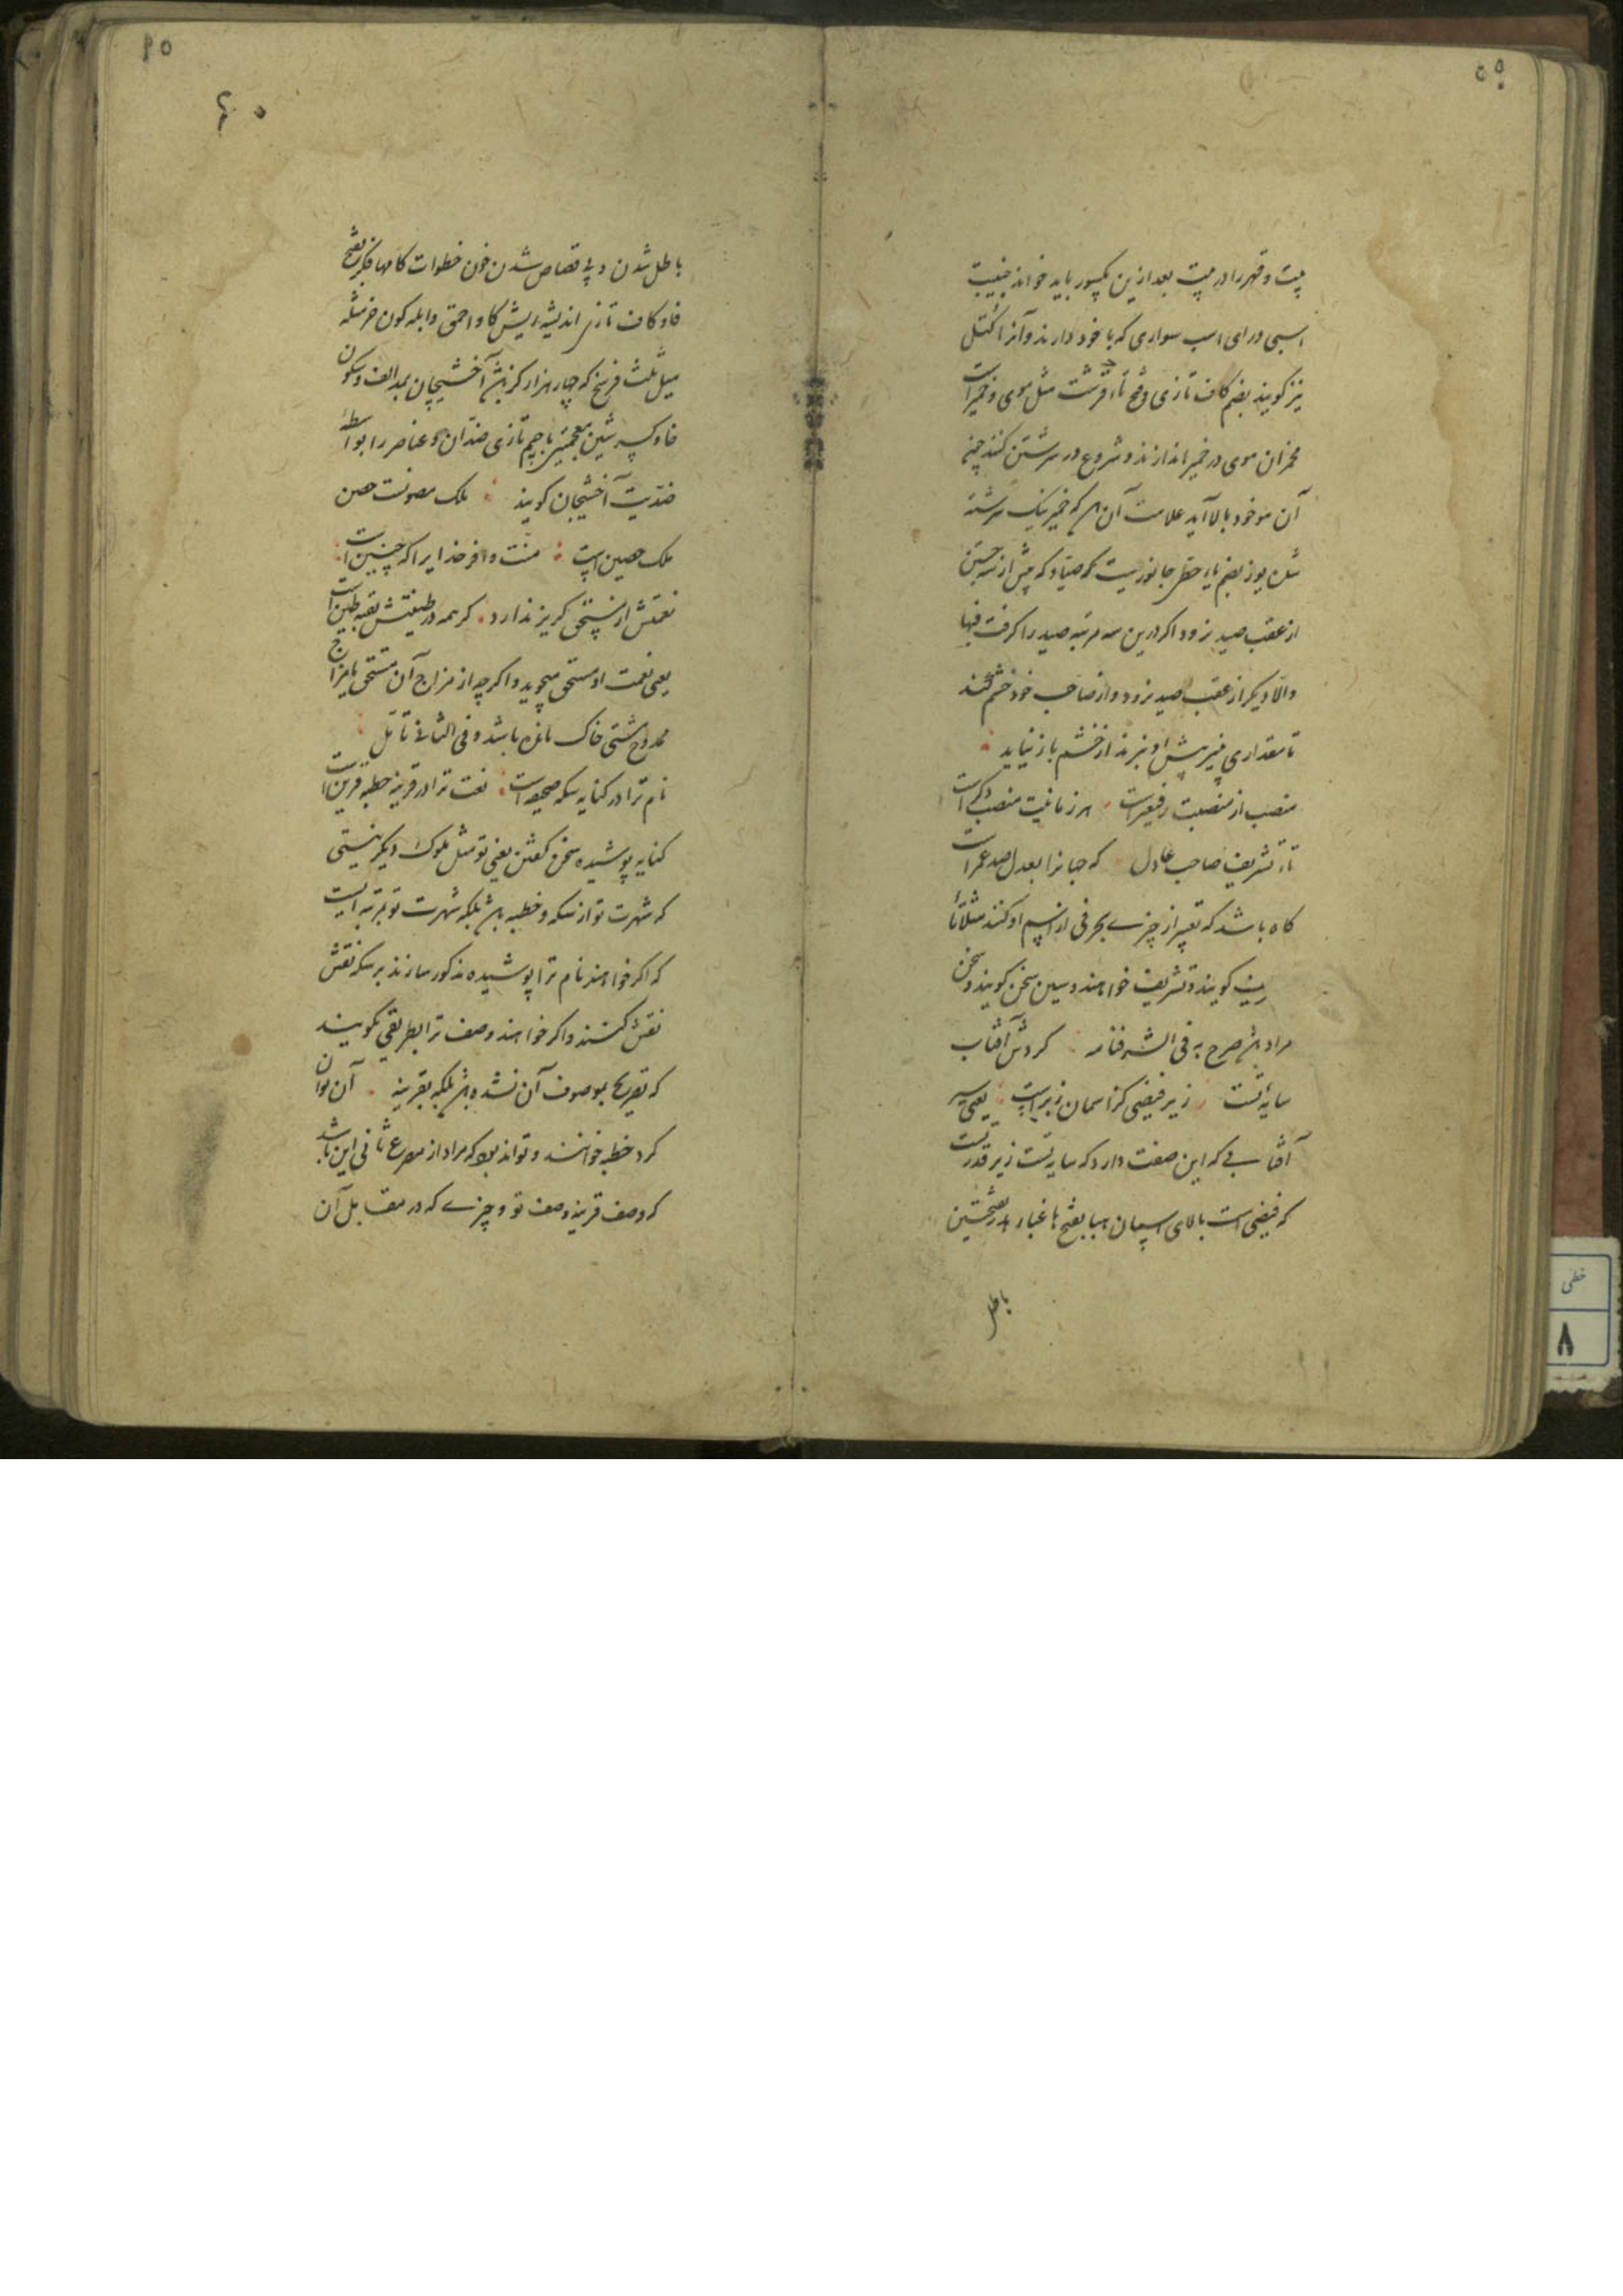 ۵۹
بیت و قهر را در بیت بعد ازین بکسور باید خواند جنیبت
اسبی ورای اسب سواری که با خود دارند و آنرا کتل
نیز گویند بضم کاف تازی و فتح تاء قرشت مثل موی و خمیر است
مخمران موی در خمیر اندازند و شروع در سرشتن کنند چون
آن مو خود بالا آید علامت آن باشد که خمیر نیک سرشته
شده یوز بضم یاء حطی جانوریست که صیاد که بیش از سه جستن
از عقب صید نرود اگر درین سه مرتبه صید را گرفت فبها
والا دیگر از عقب صید نرود و از صاحب خود خشم کند
تا مقداری پنیر پیش او نبرند از خشم باز نیاید
منصب از منصبت رفیعترست هر زمانیت منصب دگر است
تاء تشریف صاحب عادل که جهانرا بعدل صد عمر است
گاه باشد که تعبیر از چیزی بحرفی از اسم او کنند مثلا تا
گویند و تشریف خواهند و سین سخن گویند و سخن
مراد باشد صرح به فی الشرفنامه گردش آفتاب
سایه تست زیر فیضی کز آسمان زبر است یعنی سیر
آفتابی که این صفت دارد که سایه تست زیر قدرتست
که فیضی است بالای آسمان هبا بفتح ها غبار هدر بفتحتین
باطل
۶۰
باطل شدن و بی قصاص شدن خون خطوات گامها فکر بفتح
فا و کاف تازی اندیشه ریش گاو احمق و ابله کون خر مثله
میل ثلث فرسخ که چهار هزار گز باشد آخشیجان بمد الف و سکون
خا و کسر شین معجمتین با جیم تازی ضدان و عناصر را بواسطه
ضدیت آخشیجان گویند ملک مصونست حصن
ملک حصین است منت وافر خدایرا که چنین است
نعمتش از مستحق گریز ندارد گر همه در طینتش بقیه طین است
یعنی نعمت او مستحق میجوید و اگر چه از مزاج آن مستحق یا مزاج
ممدوح مشتی خاک مانده باشد و فی الثانی تامل
نام ترا در کنایه سکه صحیفه است نعت ترا در قرینه خطبه قرین است
کنایه پوشیده سخن گفتن یعنی تو مثل ملوک دیگر نیستی
که شهرت تو از سکه و خطبه باشد بلکه شهرت تو بمرتبه ایست
که اگر خواهند نام ترا پوشیده مذکور سازند بر سکه نقش
نقش کنند و اگر خواهند وصف ترا بطریقی گویند
که تصریح بموصوف آن نشده باشد بلکه بقرینه آن توان
کرد خطبه خوانند و تواند بود که مراد از مصرع ثانی این باشد
که وصف قرینه وصف تو و چیزی که در مقابل آن
خطی
۸